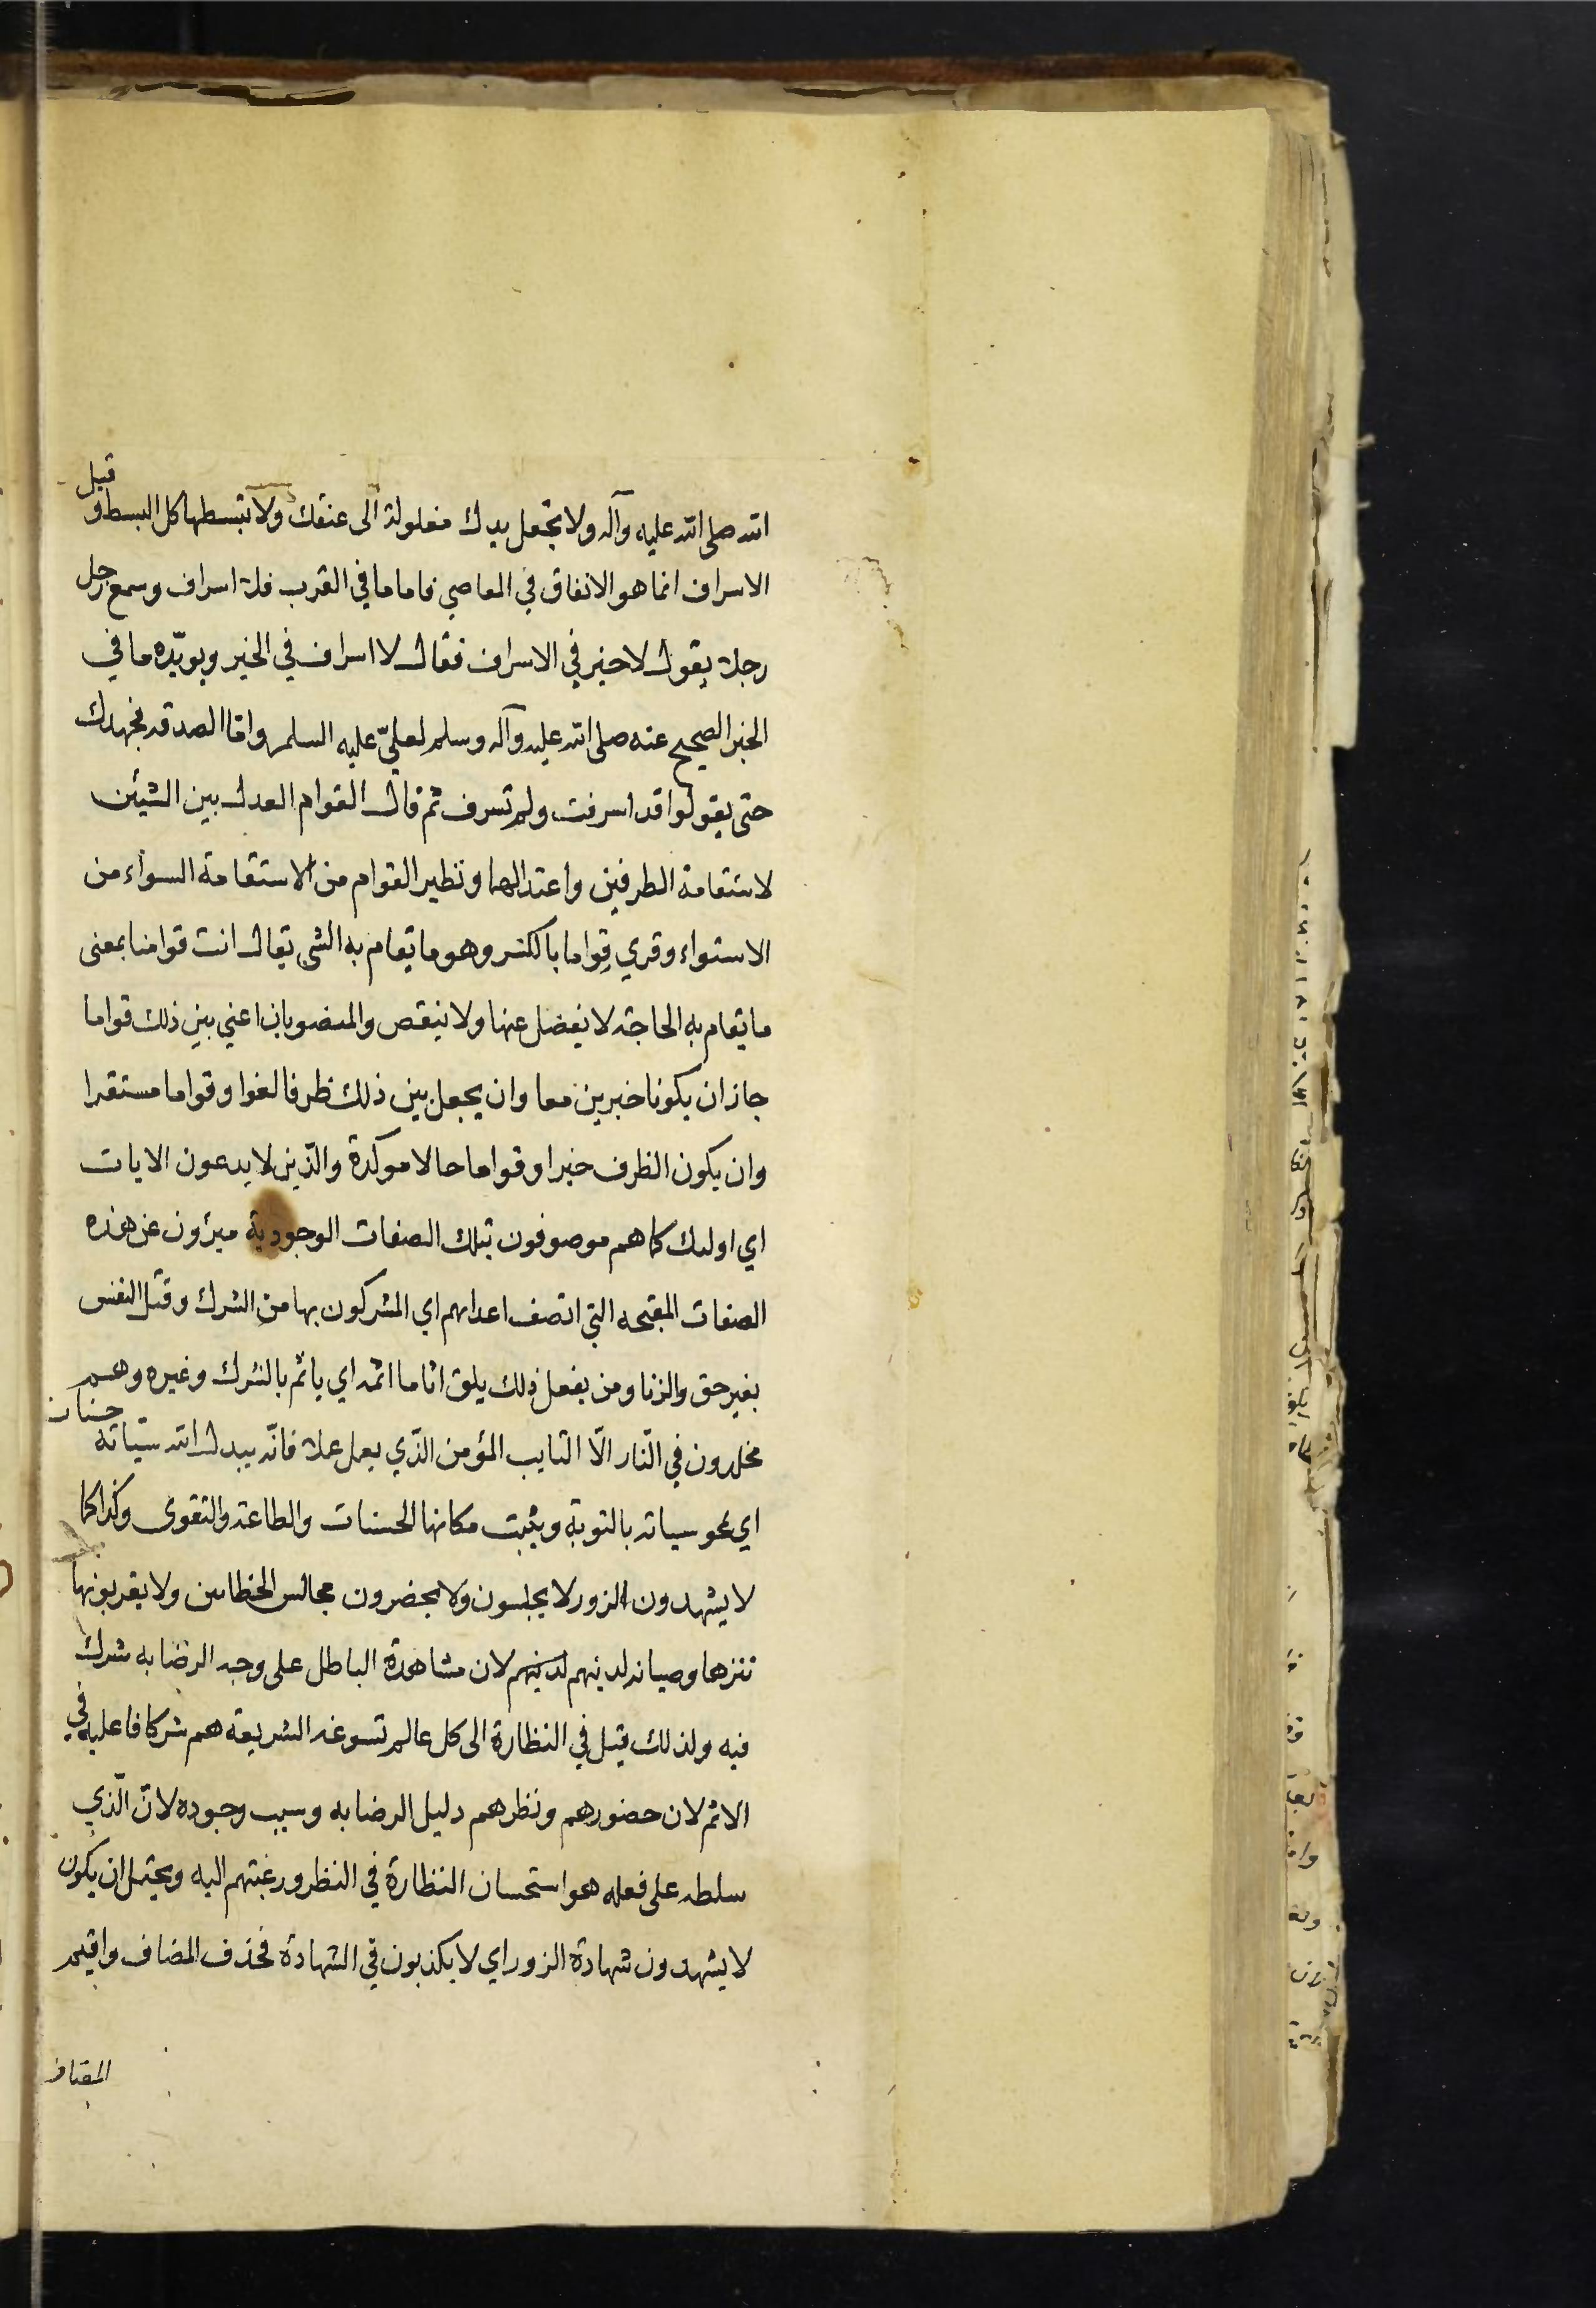 الله صلى الله عليه وآله ولا تجعل يدك مغلولة الى عنقك ولا تبسطها كل البسط وقيل
الاسراف انما هو الانفاق في المعاصي فاما ما في القرب فلا اسراف وسمع رجل
رجلا يقول لا خير في الاسراف فقال لا اسراف في الخير ويويّده ما في
الخبر الصحيح عنه صلى الله عليه وآله وسلم لعليّ عليه السلم وامّا الصدقه فجهدك
حتى يقولوا قد اسرفت ولم تسرف ثم قال القوام العدل بين الشيئن
لاستقامة الطرفين واعتدالهما ونظير القوام من الاستقامة السواء من
الاستواء وقري قِواما بالكسر وهو ما يقام به الشي يقال انت قوامنا بمعنى
ما يقام به الحاجة لا يفضل عنها ولا ينقص والمنصوبان اعني بين ذلك قواما
جاز ان يكونا خبرين معا وان يجعل بين ذلك ظرفا لغوا وقواما مستقرا
وان يكون الظرف خبرا وقواما حالا موكدة والذين لا يدعون الايات
اي اولىك كما هم موصوفون بتلك الصفات الوجودية مبرؤن عن هذه
الصفات المقبحه التي اتصف اعداىهم اي المشركون بها من الشرك وقتل النفس
بغير حق والزنا ومن يفعل ذلك يلق اثاما اثمه اي ياثم بالشرك وغيره وهم
مخلدون في النّار الّا التايب المؤمن الّذي يعمل عملا فانّه يبدل الله سيّاته حسنات
اي يمحو سياته بالتوبة ويثبت مكانها الحسنات والطاعة والتقوى وكذا كما
لا يشهدون الزور لا يجلسون ولا يحضرون مجالس الخطاىىن ولا يقربونها
تنزها وصيانه لدينهم لدينهم لان مشاهدة الباطل على وجه الرضا به شرك
فيه ولذلك قيل في النظارة الى كل عالم تسوغه الشريعة هم شركا فاعليه في
الاثم لان حضورهم ونظرهم دليل الرضا به وسبب وجوده لانّ الّذي
سلطه على فعله هو استحسان النظارة في النظر ورغبتهم اليه ويحتمل ان يكون
لا يشهدون شهادة الزور اي لا يكذبون في الشهادة فحذف المضاف واقيم
المضاف